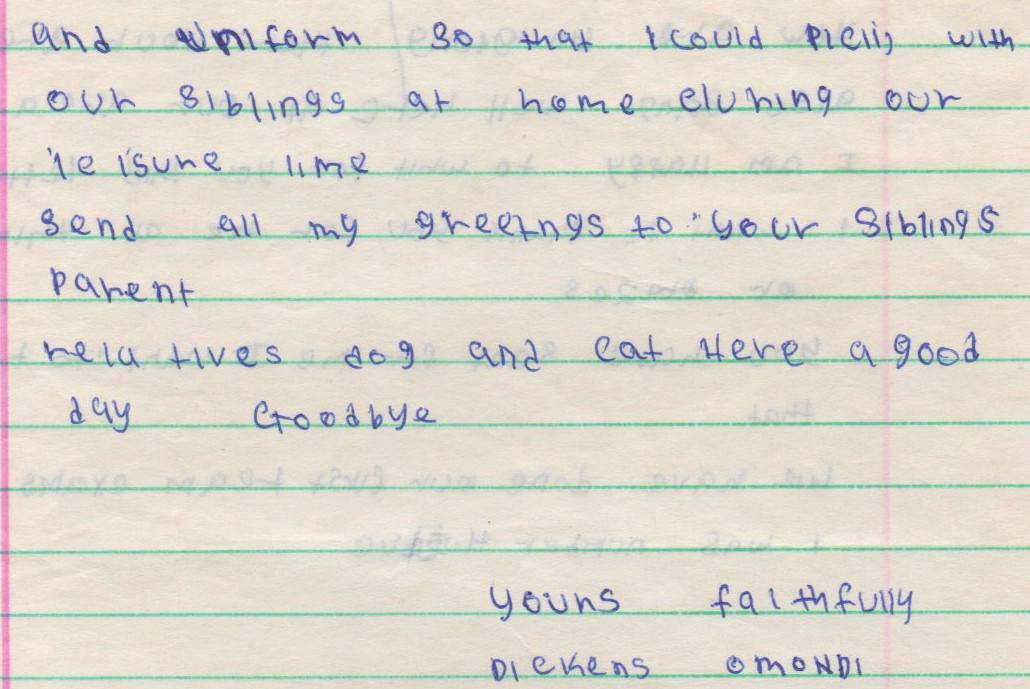 and uniform so that I could play with
our siblings at home during our
leisure time
send all my greetngs to your siblings
parent
relatives dog and cat Here a good
day Goodbye
yours faithfully
DICKENS OMONDI